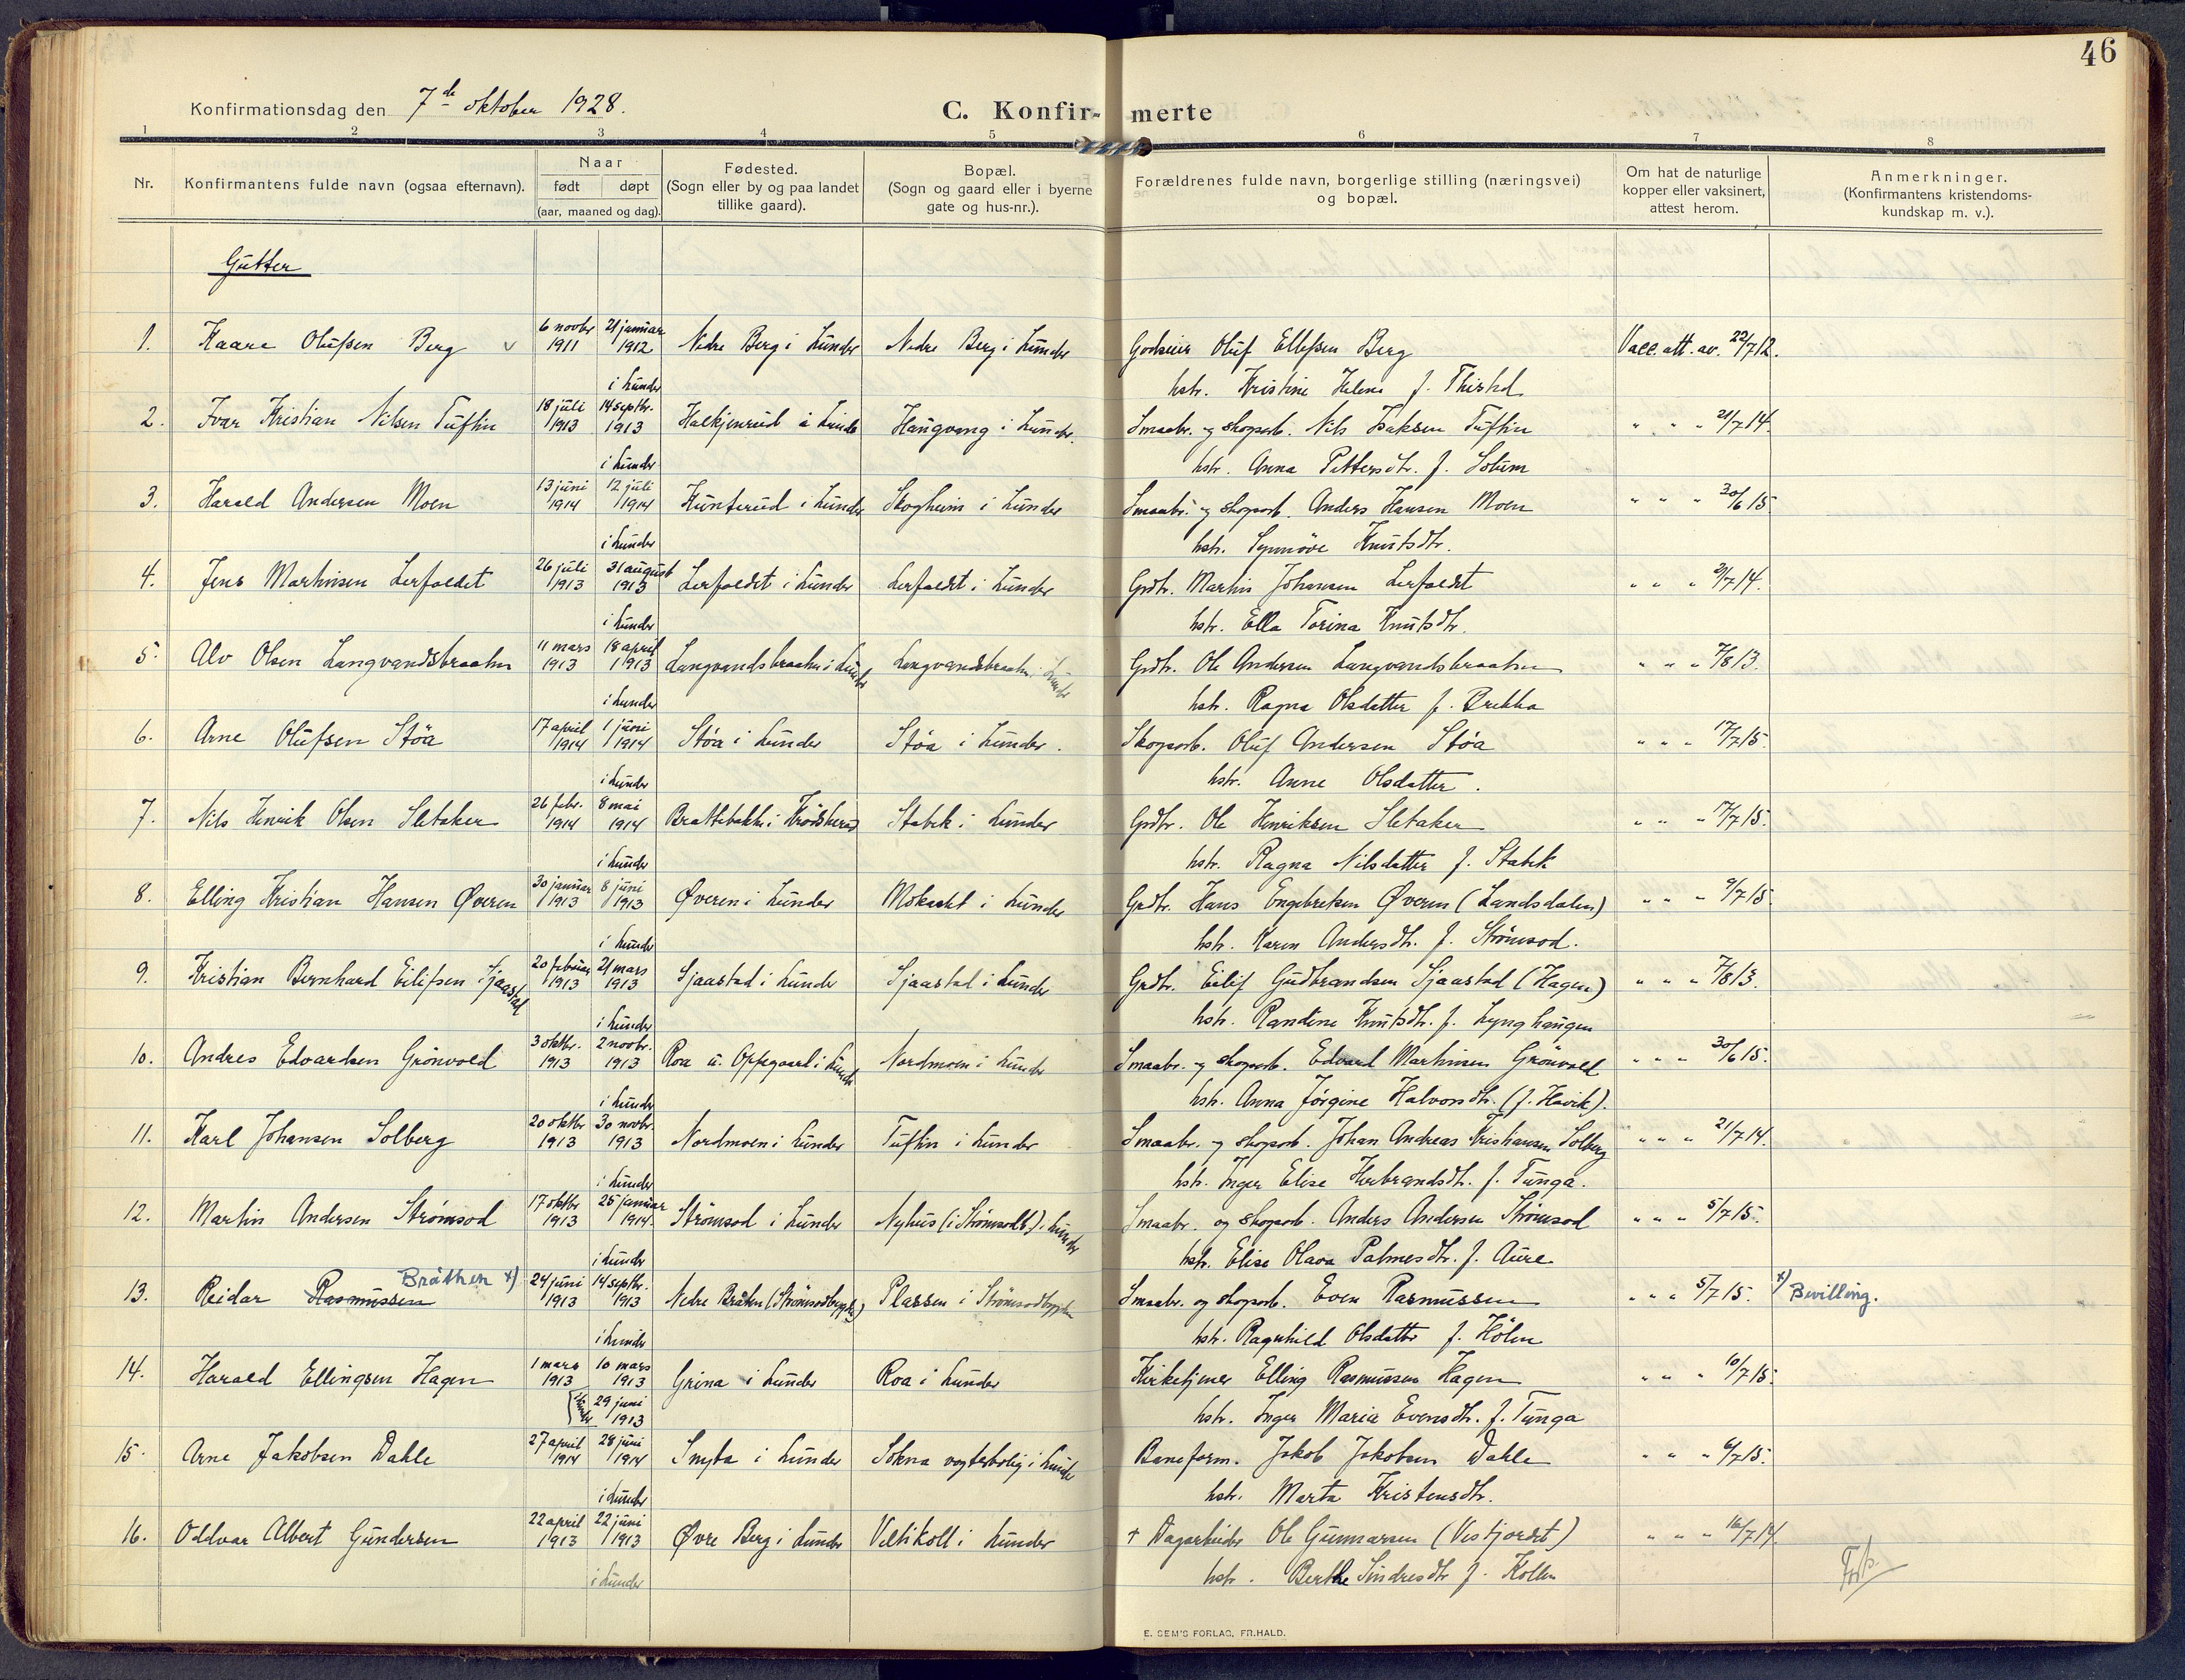 46
Konfirmationsdag den 7de oktober 1928.
C. Konfirmerte
1 2 3 4 5 6 7 8
Nr.
Konfirmantens fulde navn (ogsaa efternavn).
Naar
født døpt
(aar, maaned og dag).
Fødested.
(Sogn eller by og paa landet
tillike gaard).
Bopæl.
(Sogn og gaard eller i byerne
gate og hus-nr.).
Forældrenes fulde navn, borgerlige stilling (næringsvei)
og bopæl.
Om hat de naturlige
kopper eller vaksinert,
attest herom.
Anmerkninger.
(Konfirmantens kristendoms-
kundskap m. v.).
Gutter
1. Kaare Olufsen Berg v 6 novbr 1911 21 januar 1912 Nedre Berg i Lunder Nedre Berg i Lunder Godseier Oluf Ellefsen Berg Vacc. att. av. 22/7 12.
i Lunder hstr. Kristine Helene f. Thirstad
2. Ivar Kristian Nilsen Tuftin 18 juli 1913 14 septbr. 1913 Halkjenrud i Lunder Haugvang i Lunder. Smaabr. og skogsarb. Nils Isaksen Tuftin " " " 21/7 14.
i Lunder hstr. Anna Pettersdtr. f. Solum
3. Harald Andersen Moen 13 juni 1914 12 juli 1914 Hunterud i Lunder Skogheim i Lunder Smaabr. og skogsarb. Anders Hansen Moen " " " 30/6 15
i Lunder hstr. Synnöve Knutsdtr.
4. Jens Martinsen Lerfaldet 26 juli 1913 31 august 1913 Lerfaldet i Lunder Lerfaldet i Lunder Grdbr. Martin Johansen Lerfaldet " " " 21/7 14.
i Lunder hstr. Ella Torina Knutsdtr.
5. Alv Olsen Langvandsbraaten 11 mars 1913 18 april 1913 Langvandsbraaten i Lunder Langvandsbraaten i Lunder Grdbr. Ole Andersen Langvandsbraaten " " " 7/8 13.
i Lunder hstr. Ragna Olsdatter f. Brekka
6. Arne Olufsen Støa 17 april 1914 1 juni 1914 Støa i Lunder Støa i Lunder. Skogsarb. Oluf Andersen Støa " " " 17/7 15.
i Lunder hstr. Anne Olsdatter.
7. Nils Henrik Olsen Sletaker 26 febr. 1914 8 mai 1914 Brattebakk i Krödsherad Stabek i Lunder Grdbr. Ole Henriksen Sletaker " " " 17/7 15.
i Lunder hstr. Ragna Nilsdatter f. Stabek
8. Elling Kristian Hansen Øveren 30 januar 1913 8 juni 1913 Øveren i Lunder i Lunder Grdbr. Hans Engebretsen Øveren (Landsdalen) " " " 9/7 15.
i Lunder hstr. Karen Andersdtr. f. Strømsod.
9. Kristian Bernhard Eilifsen Sjaastad 20 februar 1913 21 mars 1913 Sjaastad i Lunder Sjaastad i Lunder Grdbr. Eilif Gudbrandsen Sjaastad (Hagen) " " " 7/8 13.
i Lunder hstr. Randine Knutsdtr. f. Lynghaugen
10. Andres Edvardsen Grönvold 3 oktbr. 1913 2 novbr. 1913 Roa u. Oppegaard i Lunder Nordmoen i Lunder Smaabr. og skogsarb. Edvard Martinsen Grönvold " " " 30/6 15.
i Lunder hstr. Anna Jørgine Halvorsdtr. (f. Havik).
11. Karl Johansen Solberg 20 oktbr 1913 30 novbr. 1913 Nordmoen i Lunder Tuftin i Lunder Smaabr. og skogsarb. Johan Andreas Kristiansen Solberg " " " 21/7 14.
i Lunder hstr. Inger Elise Herbrandsdtr. f. Tunga.
12. Martin Andersen Strømsod 17 oktbr 1913 25 januar 1914. Strømsod i Lunder Nyhus (i Strømsodb.) i Lunder Smaabr. og skogsarb. Anders Andersen Strømsod " " " 5/7 15.
i Lunder hstr. Elise Olava Palmesdtr. f. Aure
13. Reidar Rasmussen Bråthen x) 24 juni 1913 14 septbr. 1913 Nedre Bråten (Strømsodbygda) Plassen i Strømsodbygda Smaabr. og skogsarb. Even Rasmussen " " " 5/7 15. x) Bevilling.
i Lunder hstr. Ragnhild Olsdatter f. Hölen
14. Harald Ellingsen Hagen 1 mars 1913 10 mars 1913 Grina i Lunder Roa i Lunder Kirketjener Elling Rasmussen Hagen " " " 10/7 15.
(i Lunder 29 juni 1913 hstr. Inger Maria Evensdtr. f. Tunga
15. Arne Jakobsen Dahle 27 april 1914 28 juni 1914 Snyta i Lunder Sokna vogterbolig i Lunder Baneform. Jakob Jakobsen Dahle " " " 6/7 15.
i Lunder hstr. Marta Kristensdtr.
16. Oddvar Albert Gundersen 22 april 1913 22 juni 1913 Øvre Berg i Lunder Veltikoll i Lunder + Dagarbeider Ole Gunnarsen (Vestfjordet) " " " 16/7 14.
i Lunder hstr. Berthe Sindresdtr f. Kollen
E. SEM'S FORLAG, FR.HALD.